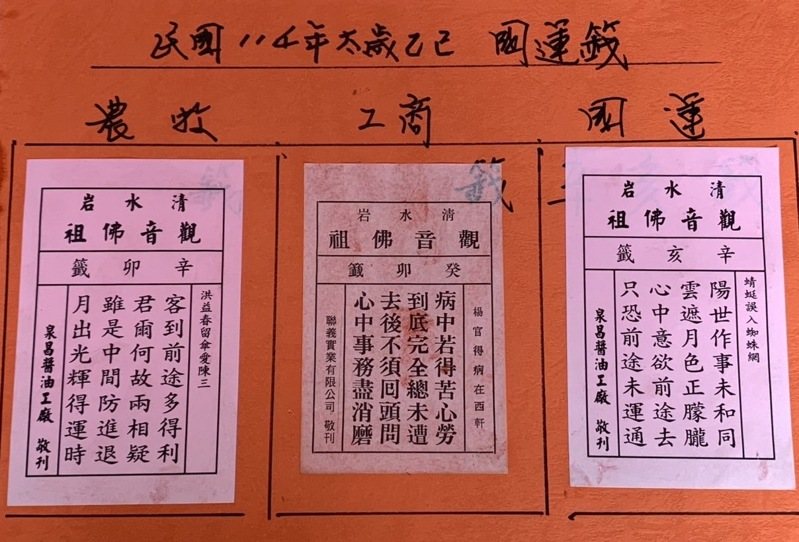 民國114年太歲乙巳 國運籤
國運
工商
農收
清水岩
觀音佛祖
辛亥籤
蜻蜓誤入蜘蛛網
陽世作事未和同
雲遮月色正朦朧
心中意欲前途去
只恐前途未運通
泉昌醬油工廠 敬刊
籤
清水岩
觀音佛祖
癸卯籤
楊官得病在西軒
病中若得苦心勞
到底完全總未遭
去後不須回頭問
心中事務盡消磨
聯義實業有限公司 敬刊
清水岩
觀音佛祖
辛卯籤
洪益春留傘愛陳三
客到前途多得利
君爾何故兩相疑
雖是中間防進退
月出光輝得運時
泉昌醬油工廠 敬刊